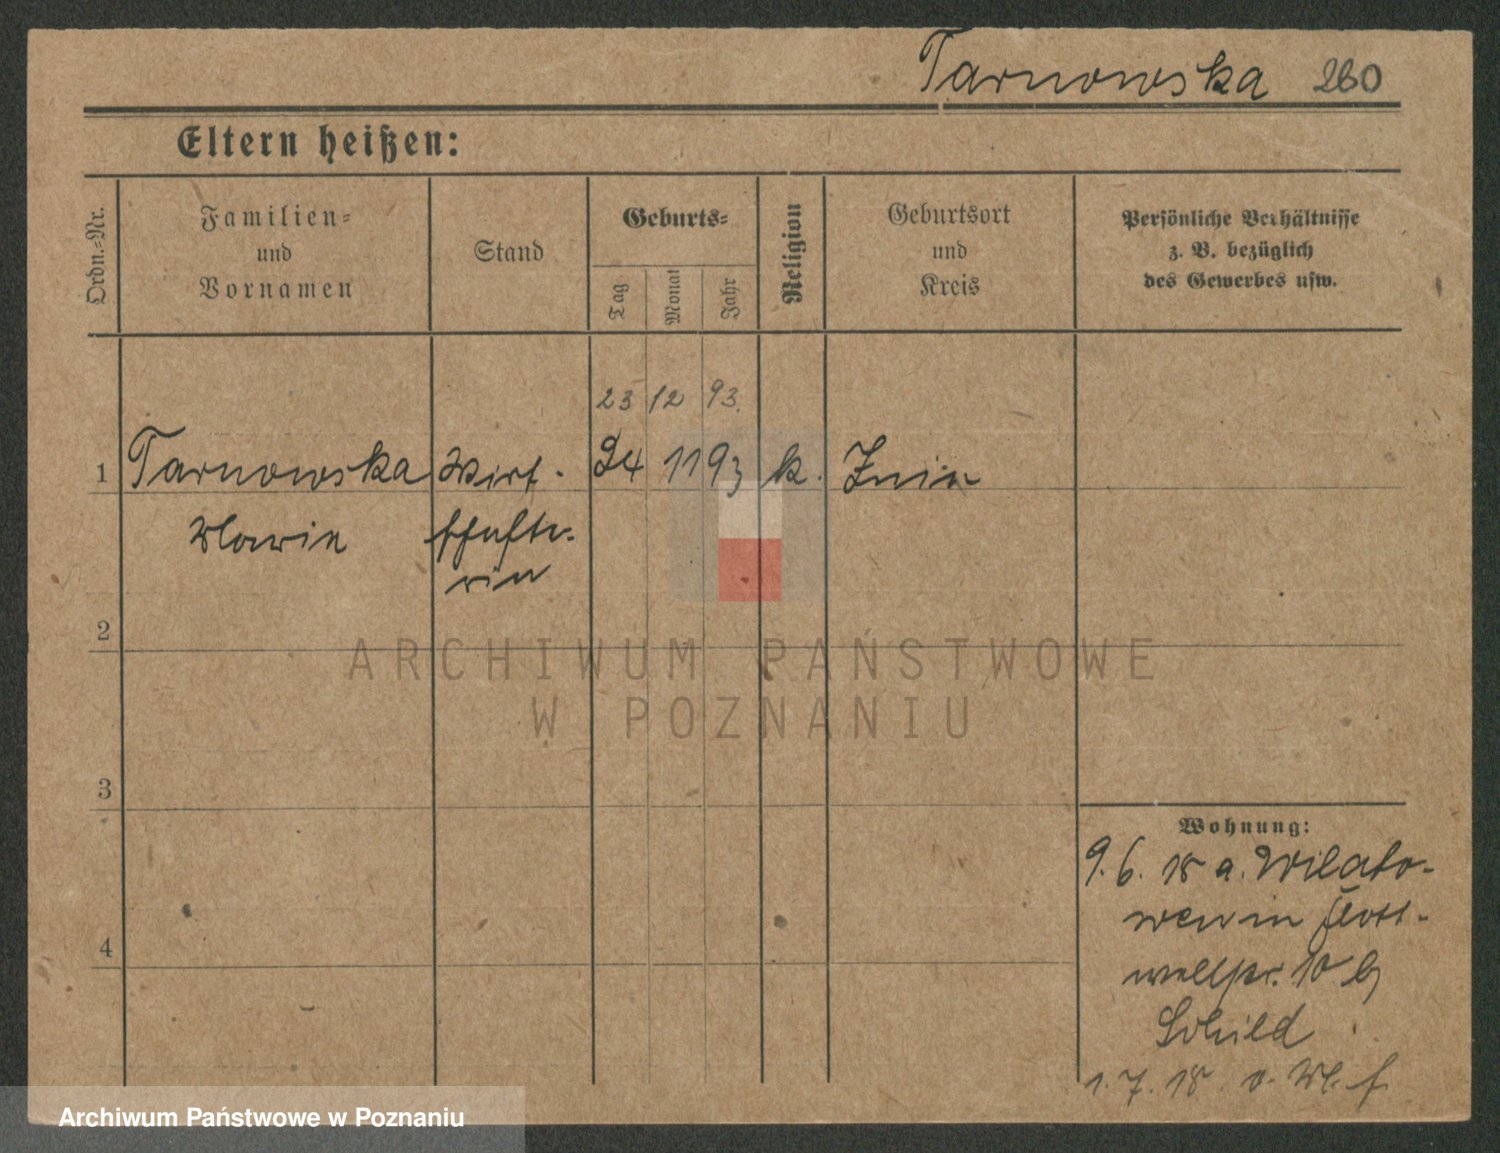 Tarnowska 260
Eltern heißen:
Ordn.=Nr.
Familien=
und
Vornamen
Stand
Geburts=
Tag
Monat
Jahr
Religion
Geburtsort
und
Kreis
Persönliche Verhältnisse
z. B. bezüglich
des Gewerbes usw.
23 12 93.
1 Tarnowska Wirt- 24 11 93 k. Znin
Marie schafte-
rin
2
ARCHIWUM PAŃSTWOWE
W POZNANIU
3
4
Wohnung:
9. 6. 18 a. Wilato-
wen in Flott-
wellstr. 10 b
Schild
1. 7. 18
Archiwum Państwowe w Poznaniu